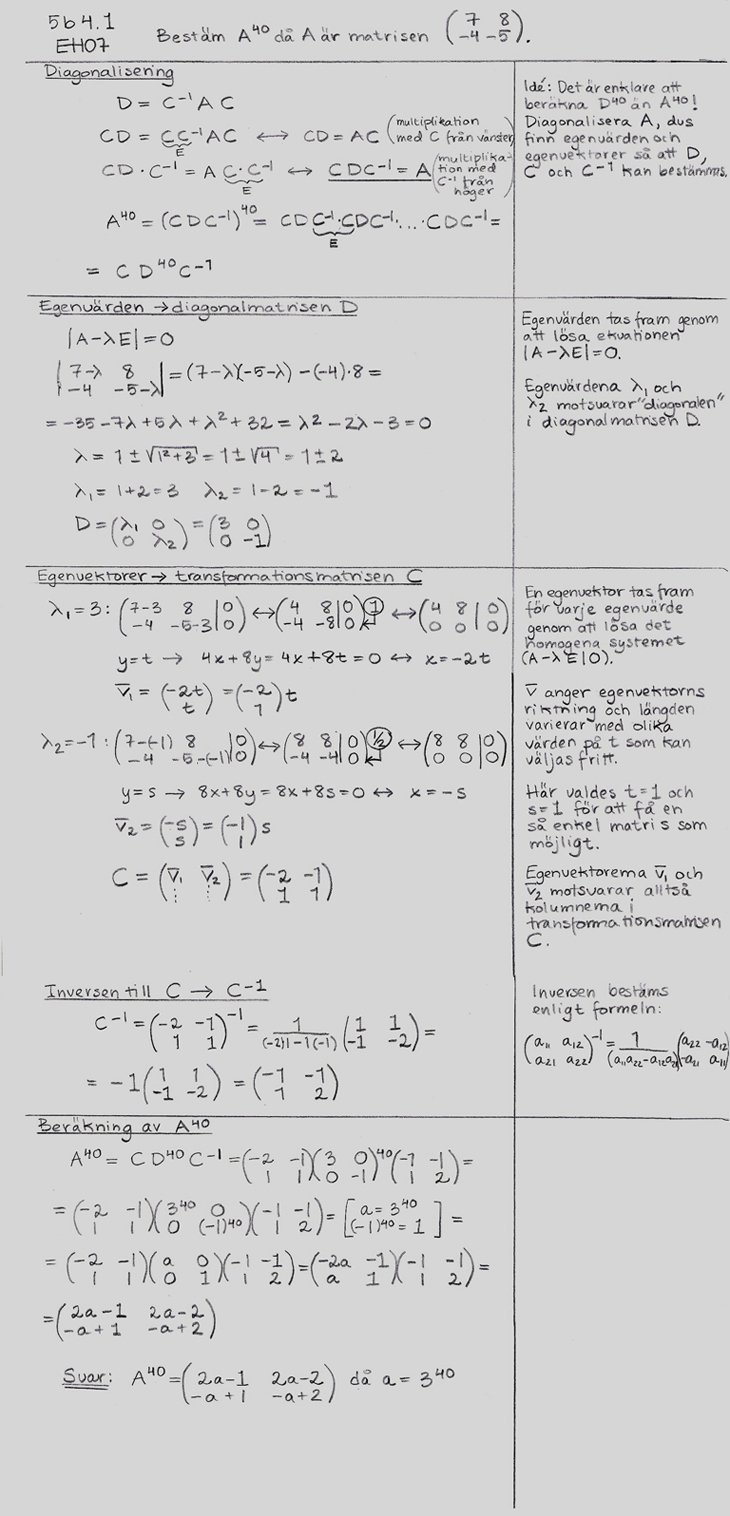 5b4.1
EH07
Bestäm A⁴⁰ då A är matrisen (7 8 / -4 -5).
Diagonalisering
D = C⁻¹AC
CD = CC⁻¹AC ↔ CD = AC (multiplikation med C från vänster)
E
CD·C⁻¹ = AC·C⁻¹ ↔ CDC⁻¹ = A (multiplikation med C⁻¹ från höger)
E
A⁴⁰ = (CDC⁻¹)⁴⁰ = CDC⁻¹·CDC⁻¹·...·CDC⁻¹ =
E
= CD⁴⁰C⁻¹
Idé: Det är enklare att
beräkna D⁴⁰ än A⁴⁰!
Diagonalisera A, dvs
finn egenvärden och
egenvektorer så att D,
C och C⁻¹ kan bestämms.
Egenvärden → diagonalmatrisen D
|A-λE| = 0
|7-λ 8 / -4 -5-λ| = (7-λ)(-5-λ) - (-4)·8 =
= -35-7λ+5λ+λ²+32 = λ²-2λ-3 = 0
λ = 1±√(1²+3) = 1±√4 = 1±2
λ₁ = 1+2 = 3 λ₂ = 1-2 = -1
D = (λ₁ 0 / 0 λ₂) = (3 0 / 0 -1)
Egenvärden tas fram genom
att lösa ekvationen
|A-λE| = 0.
Egenvärdena λ₁ och
λ₂ motsvarar "diagonalen"
i diagonalmatrisen D.
Egenvektorer → transformationsmatrisen C
λ₁=3: (7-3 8 | 0 / -4 -5-3 | 0) ↔ (4 8 | 0 / -4 -8 | 0) ① ↔ (4 8 | 0 / 0 0 | 0)
y=t → 4x+8y = 4x+8t = 0 ↔ x = -2t
v̄₁ = (-2t / t) = (-2 / 1)t
λ₂=-1: (7-(-1) 8 | 0 / -4 -5-(-1) | 0) ↔ (8 8 | 0 / -4 -4 | 0) (½) ↔ (8 8 | 0 / 0 0 | 0)
y=s → 8x+8y = 8x+8s = 0 ↔ x = -s
v̄₂ = (-s / s) = (-1 / 1)s
C = (v̄₁ v̄₂ / ⋮ ⋮) = (-2 -1 / 1 1)
En egenvektor tas fram
för varje egenvärde
genom att lösa det
homogena systemet
(A-λE|0).
v̄ anger egenvektorns
riktning och längden
varierar med olika
värden på t som kan
väljas fritt.
Här valdes t=1 och
s=1 för att få en
så enkel matris som
möjligt.
Egenvektorerna v̄₁ och
v̄₂ motsvarar alltså
kolumnerna i
transformationsmatrisen
C.
Inversen till C → C⁻¹
C⁻¹ = (-2 -1 / 1 1)⁻¹ = 1/((-2)1-1(-1)) (1 1 / -1 -2) =
= -1(1 1 / -1 -2) = (-1 -1 / 1 2)
Inversen bestäms
enligt formeln:
(a₁₁ a₁₂ / a₂₁ a₂₂)⁻¹ = 1/(a₁₁a₂₂-a₁₂a₂₁) (a₂₂ -a₁₂ / -a₂₁ a₁₁)
Beräkning av A⁴⁰
A⁴⁰ = CD⁴⁰C⁻¹ = (-2 -1 / 1 1)(3 0 / 0 -1)⁴⁰(-1 -1 / 1 2) =
= (-2 -1 / 1 1)(3⁴⁰ 0 / 0 (-1)⁴⁰)(-1 -1 / 1 2) = [a = 3⁴⁰ / (-1)⁴⁰ = 1] =
= (-2 -1 / 1 1)(a 0 / 0 1)(-1 -1 / 1 2) = (-2a -1 / a 1)(-1 -1 / 1 2) =
= (2a-1 2a-2 / -a+1 -a+2)
Svar: A⁴⁰ = (2a-1 2a-2 / -a+1 -a+2) då a = 3⁴⁰